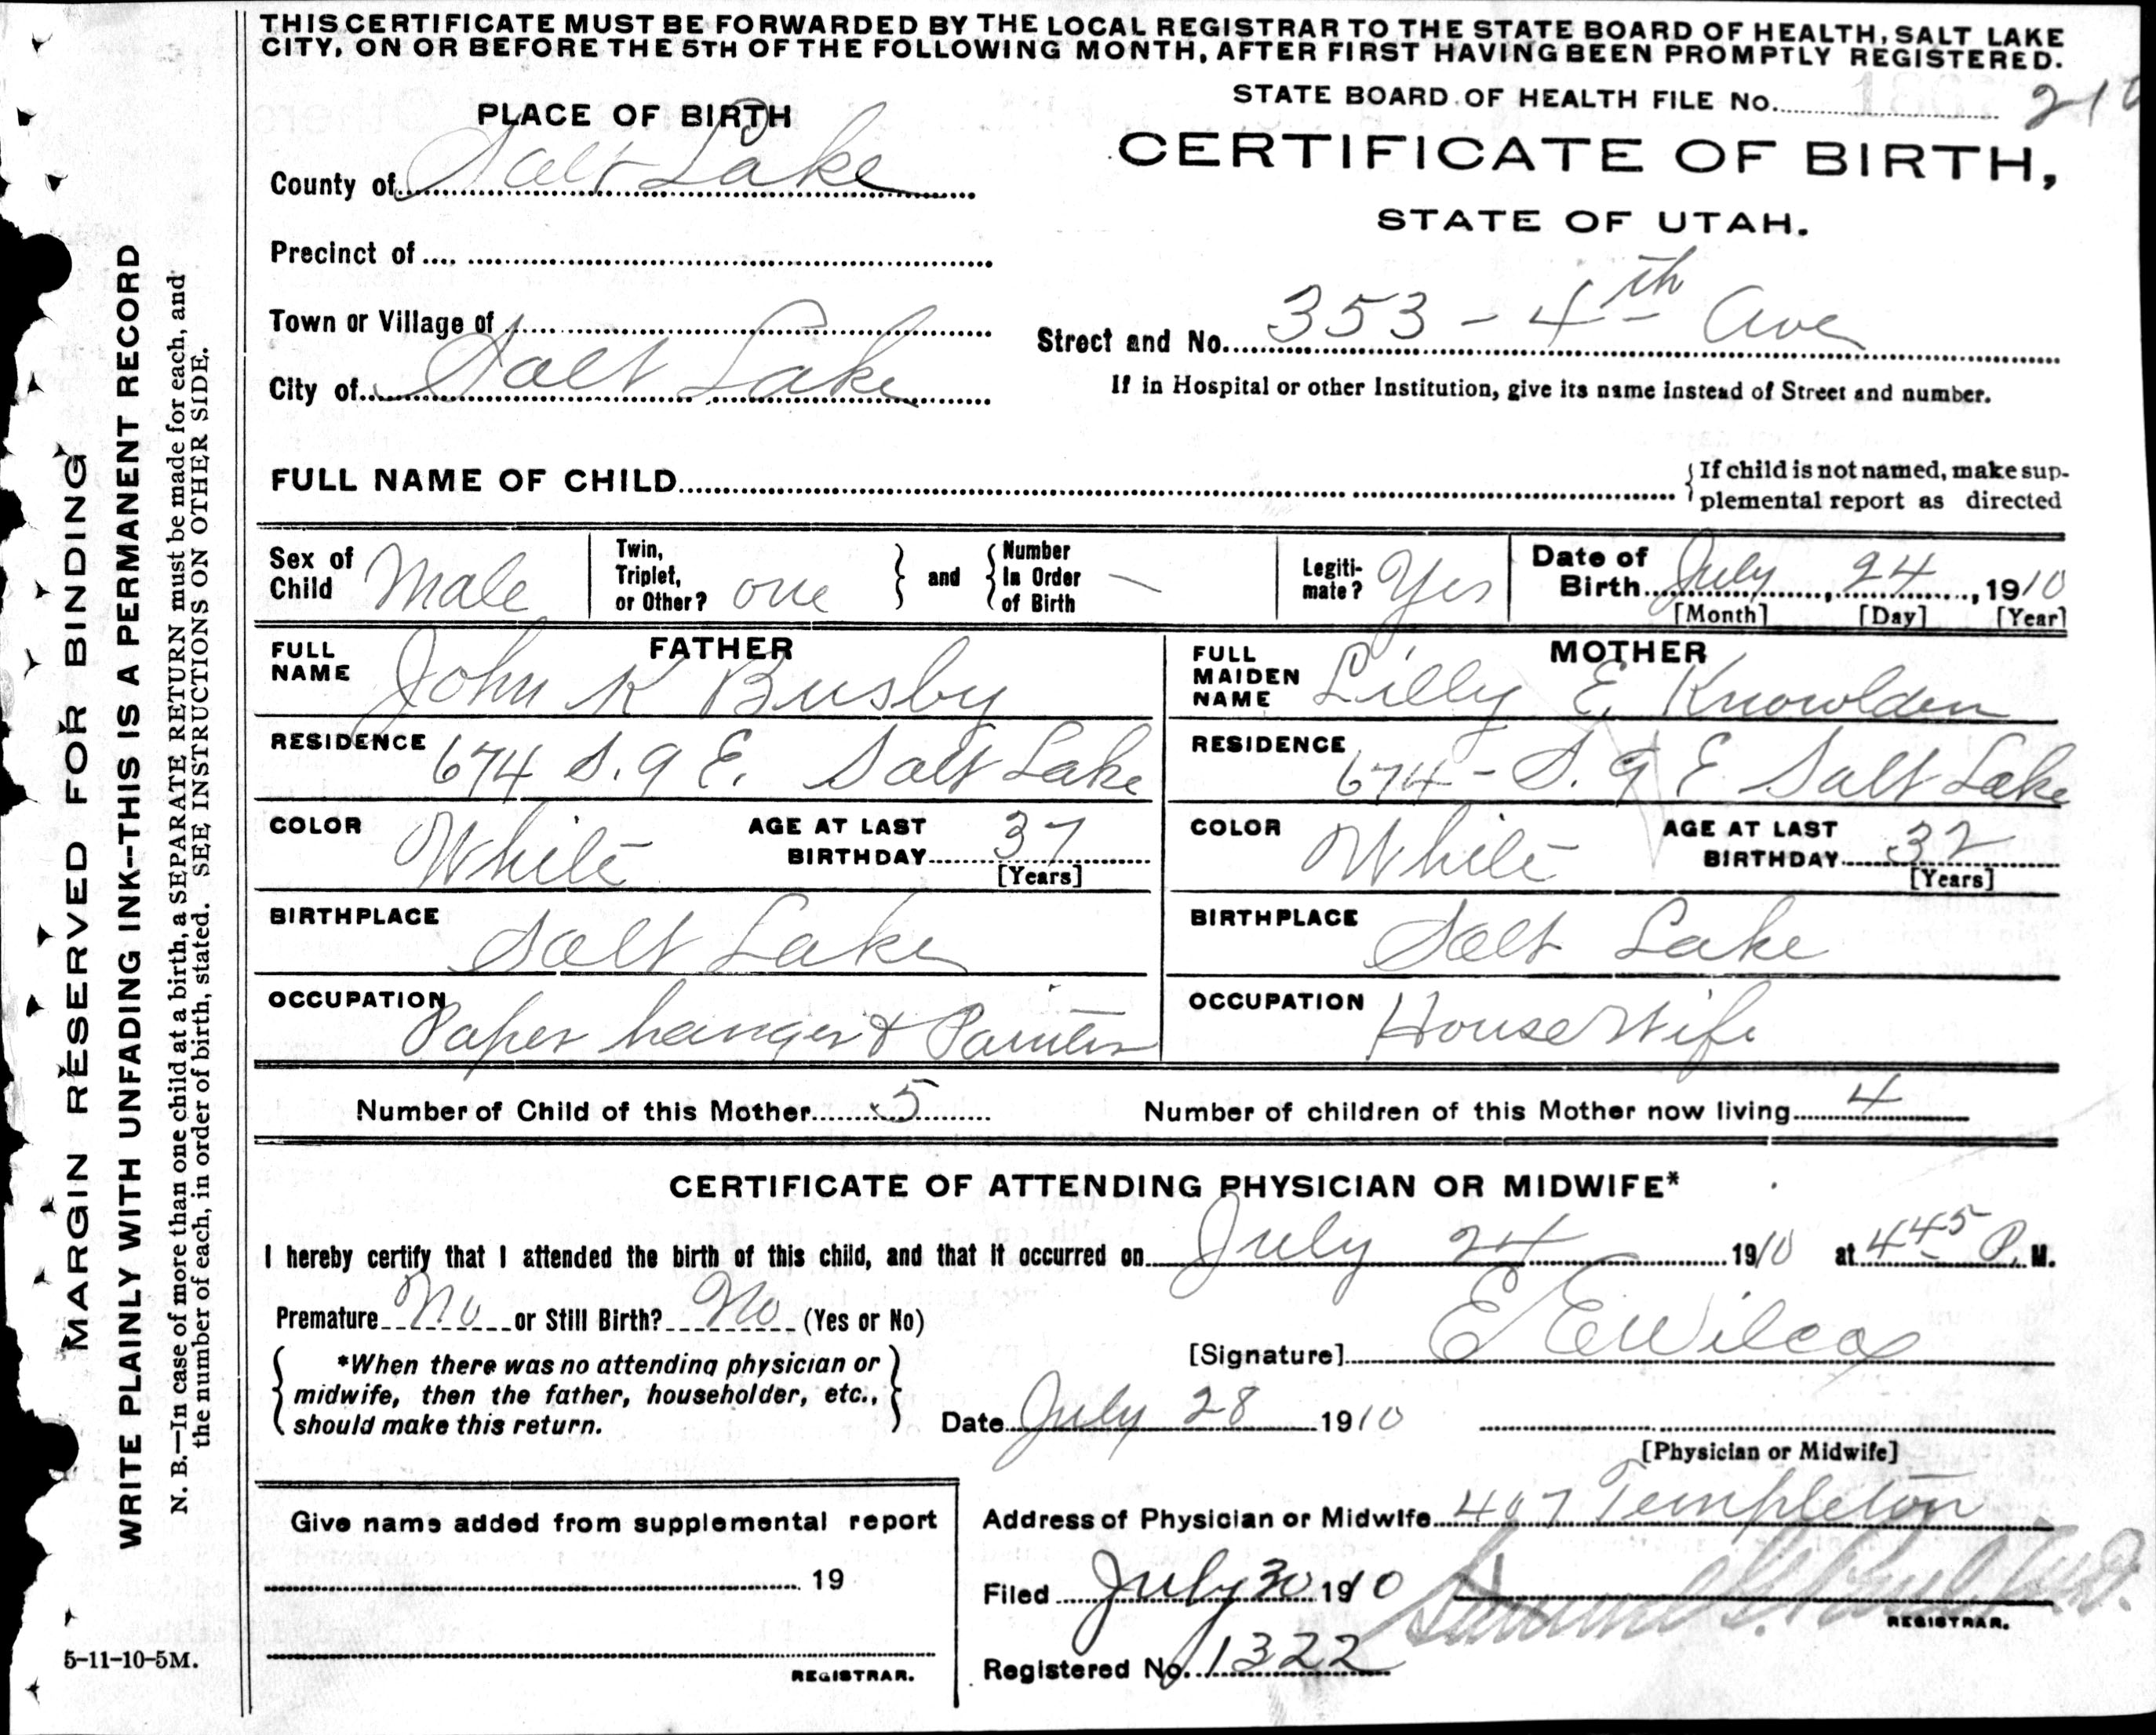 THIS CERTIFICATE MUST BE FORWARDED BY THE LOCAL REGISTRAR TO THE STATE BOARD OF HEALTH, SALT LAKE
CITY, ON OR BEFORE THE 5TH OF THE FOLLOWING MONTH, AFTER FIRST HAVING BEEN PROMPTLY REGISTERED.
STATE BOARD OF HEALTH FILE No.
PLACE OF BIRTH
CERTIFICATE OF BIRTH,
County of Salt Lake
STATE OF UTAH.
Precinct of
Town or Village of
Street and No. 353 - 4th Ave
City of Salt Lake
If in Hospital or other Institution, give its name instead of Street and number.
FULL NAME OF CHILD
{If child is not named, make sup-
plemental report as directed
Sex of Child Male
Twin, Triplet, or Other? one } and { Number In Order of Birth —
Legiti-mate? Yes
Date of Birth July, 24, 1910
[Month] [Day] [Year]
FATHER
FULL NAME John K Busby
MOTHER
FULL MAIDEN NAME Lilly E. Knowlden
RESIDENCE 674 S. 9 E. Salt Lake
RESIDENCE 674 - S. 9 E Salt Lake
COLOR White AGE AT LAST BIRTHDAY 37 [Years]
COLOR White AGE AT LAST BIRTHDAY 32 [Years]
BIRTHPLACE Salt Lake
BIRTHPLACE Salt Lake
OCCUPATION Paper hanger & Painter
OCCUPATION House Wife
Number of Child of this Mother 5 Number of children of this Mother now living 4
CERTIFICATE OF ATTENDING PHYSICIAN OR MIDWIFE*
I hereby certify that I attended the birth of this child, and that it occurred on July 24 1910 at 4 45 P. M.
Premature No or Still Birth? No (Yes or No)
[Signature] E E Wilcox
{ *When there was no attending physician or
midwife, then the father, householder, etc.,
should make this return. }
Date July 28 1910
[Physician or Midwife]
Give name added from supplemental report
19
REGISTRAR.
Address of Physician or Midwife 407 Templeton
Filed July 30 1910
REGISTRAR.
Registered No. 1322
MARGIN RESERVED FOR BINDING
WRITE PLAINLY WITH UNFADING INK--THIS IS A PERMANENT RECORD
N. B.—In case of more than one child at a birth, a SEPARATE RETURN must be made for each, and
the number of each, in order of birth, stated. SEE INSTRUCTIONS ON OTHER SIDE.
5-11-10-5M.